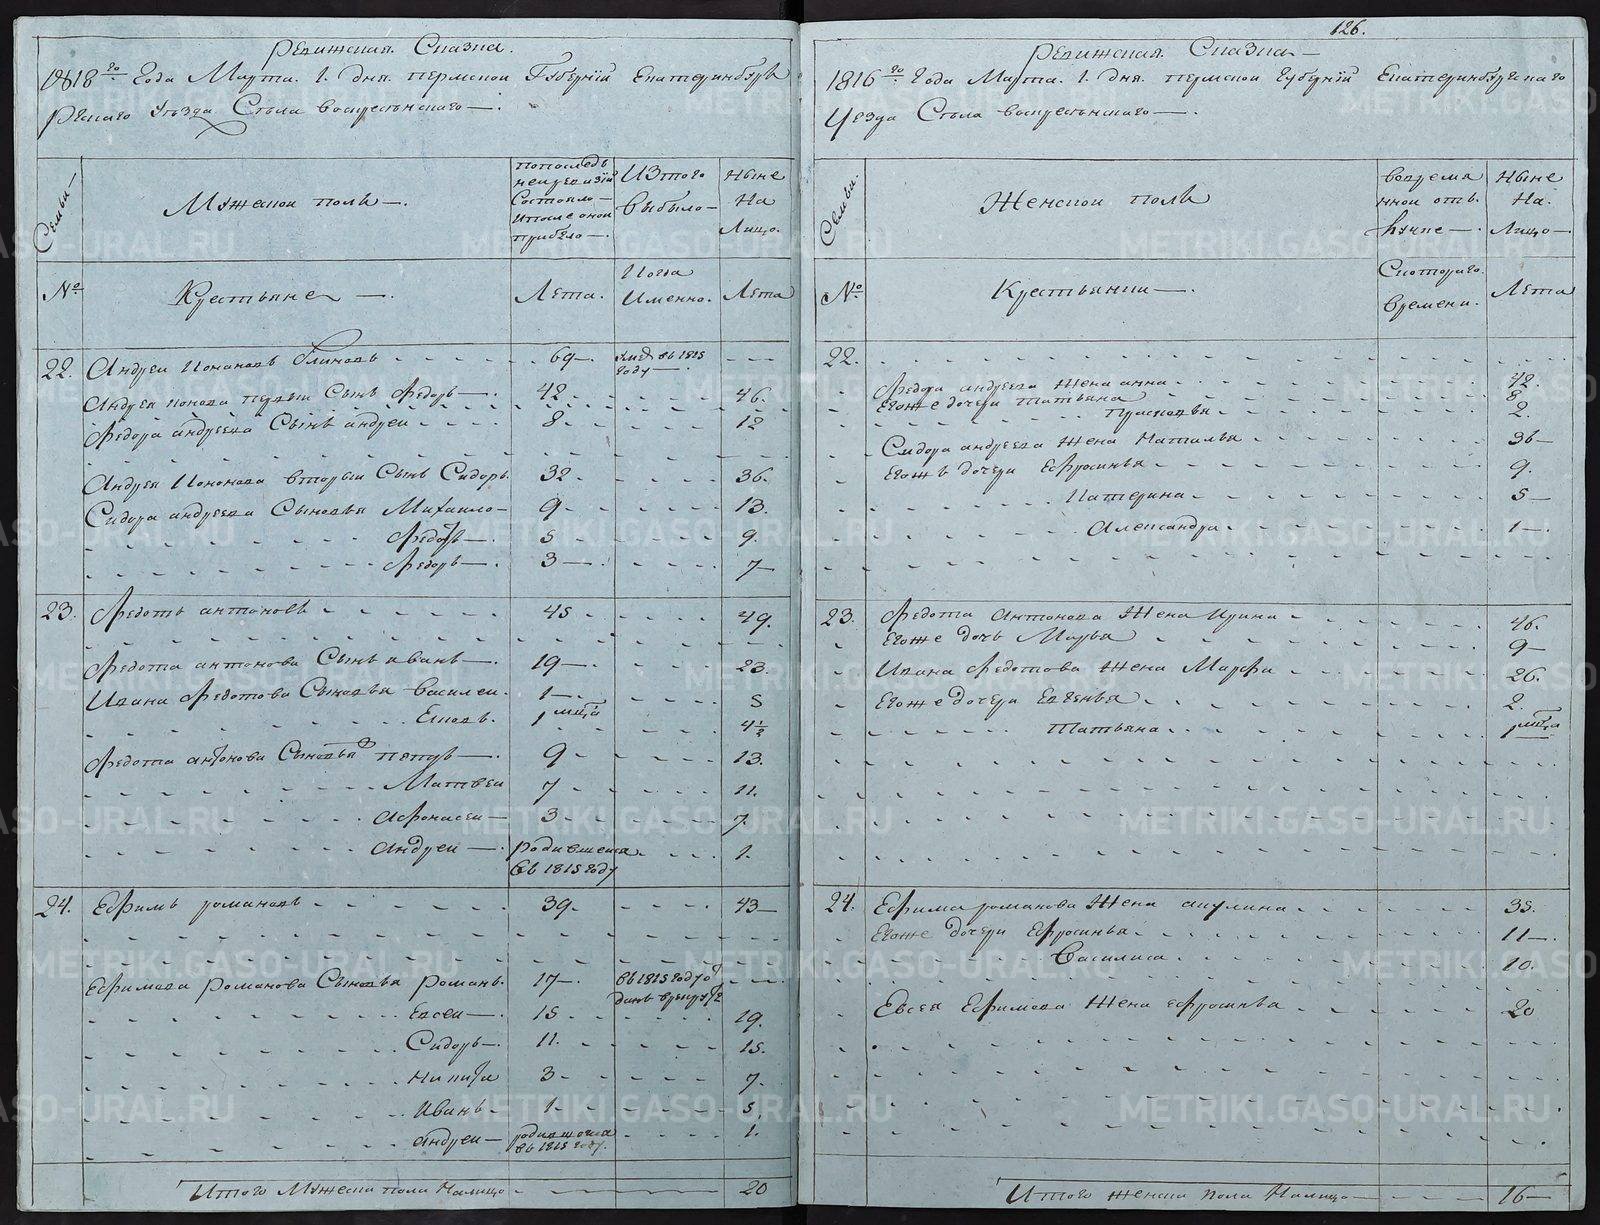 126.
Ревижская Сказка.
1816 го Года Марта 1. дня пермской Губернїи Екатеринбурх
Рскаго Уезда Села воскресенскаго
Семьи
Мужеской полъ
попоследъ
ней ревизїи
Состояло
ипосле оной
прибыло
Изтого
Выбыло
Ныне
На
Лицо.
№
Крестьяне
Лета.
Когда
Имянно.
Лета
22. Андреи Кононовъ блиновъ 69 умре въ 1815
году
Андрея конова первыи Сынъ Федоръ 42 46.
Федора андреева Сынъ андреи 8 12
Андрея Кононова вторыи Сынъ Сидоръ 32 36.
Сидора андреева Сыновья Михаило 9 13.
Федотъ 5 9.
Федоръ 3 7
23. Федотъ антоновъ 45 49.
Федота антонова Сынъ иванъ 19 23.
Ивана Федотова Сыновья Василеи 1 5
Еловъ. 1 мцъ 4½
Федота антонова Сыновья петръ 9 13.
Матвеи 7 11.
Афонасеи 3 7.
андреи родившеися 1.
въ 1815 году
24. Ефимъ романовъ 39. 43
Ефимова Романова Сыновья Романъ. 17 въ 1815 году о
данъ врекруты
Евсеи 15 19.
Сидоръ 11. 15.
Никита 3 7.
Иванъ 1 5.
андреи родившеися 1.
въ 1815 году.
Итого Мужеска пола Налицо 20
Ревижская Сказка
1816 го Года Марта 1. дня пермской губернїи Екатеринбургскаго
Уезда Села воскресенскаго
Семьи.
Женской полъ
вовремя
нной отъ
лучке
Ныне
На.
Лицо
№
Крестьянки
Скотораго
времени.
Лета
22.
Федора андреева Жена анна 42.
Егоже дочери татьяна 8.
прасковья 2.
Сидора андреева Жена Наталья 36
Егожъ дочери Ефросинья 9.
Катерина 5
Александра 1
23. Федота Антонова Жена Ирина 46.
Егоже дочь Марья 9
Ивана Федотова Жена Марфа 26.
Егоже дочери Евгенья 2.
Татьяна 1 мцъ
24. Ефима романова Жена акулина 35.
Егоже дочери Ефросинья 11
Василиса 10.
Евсея Ефимова Жена ефросинья 20
Итого женска пола Налицо 16
METRIKI.GASO-URAL.RU